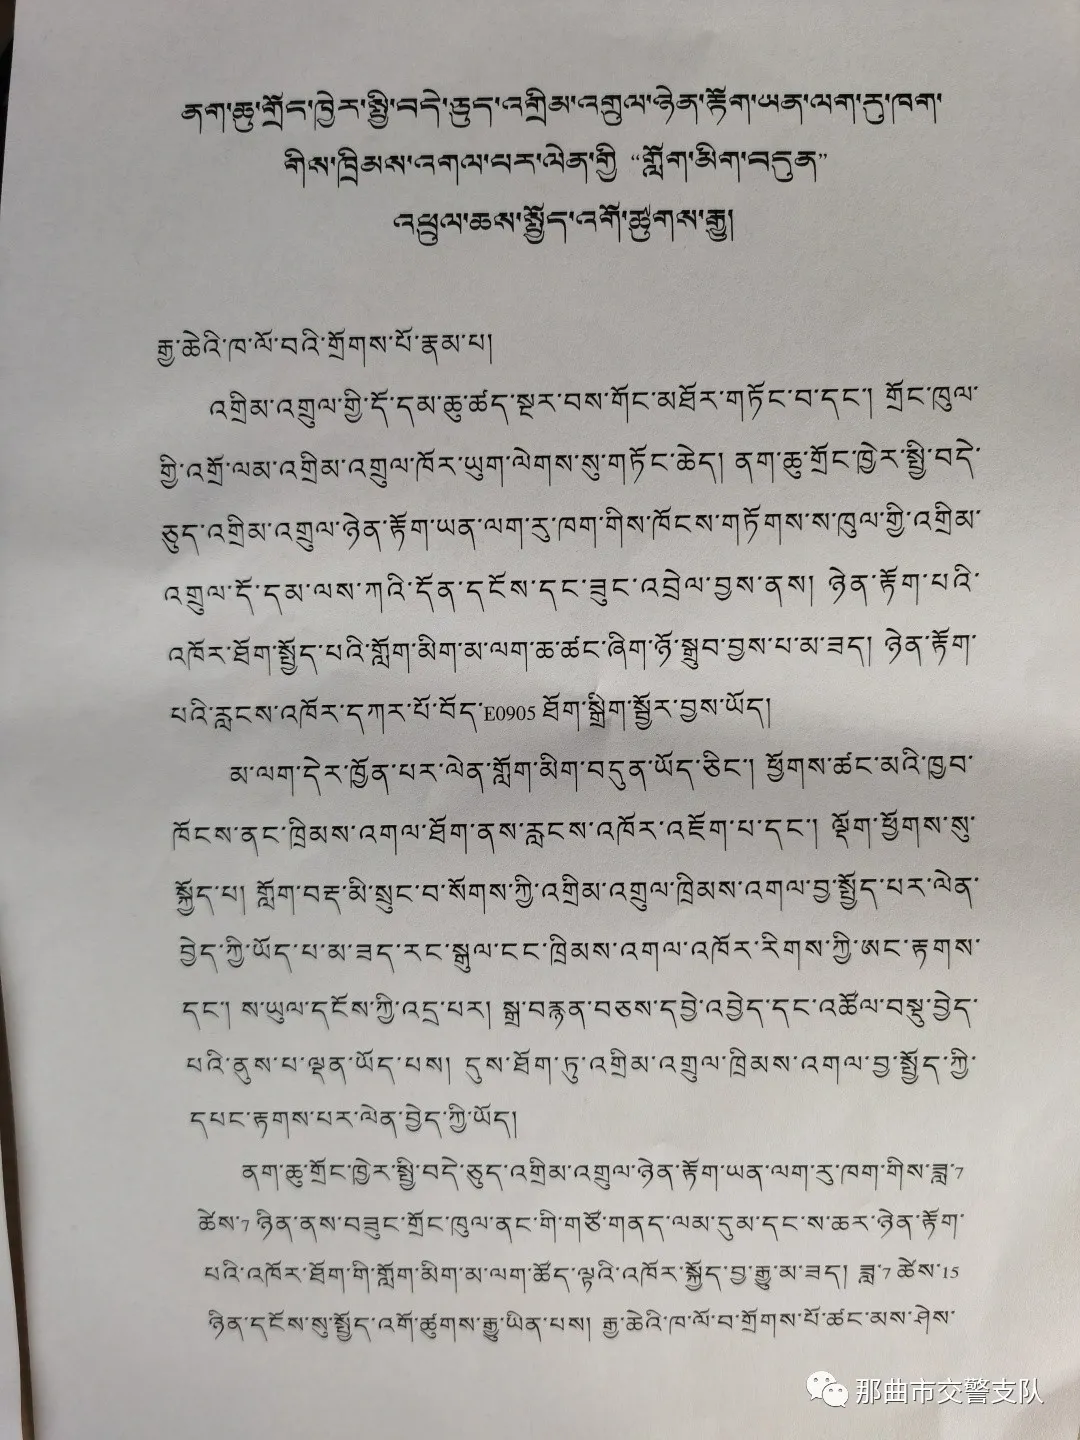 ནག་ཆུ་གྲོང་ཁྱེར་སྤྱི་བདེ་ཅུད་འགྲིམ་འགྲུལ་ཉེན་རྟོག་ཡན་ལག་རུ་ཁག་
གིས་ཁྲིམས་འགལ་པར་ལེན་གྱི “གློག་མིག་བདུན”
འཕྲུལ་ཆས་སྤྱོད་འགོ་ཚུགས་རྒྱུ།
རྒྱ་ཆེའི་ཁ་ལོ་བའི་གྲོགས་པོ་རྣམ་པ།
འགྲིམ་འགྲུལ་གྱི་དོ་དམ་ཆུ་ཚད་སྔར་བས་གོང་མཐོར་གཏོང་བ་དང་། གྲོང་ཁུལ་
གྱི་འགྲོ་ལམ་འགྲིམ་འགྲུལ་ཁོར་ཡུག་ལེགས་སུ་གཏོང་ཆེད། ནག་ཆུ་གྲོང་ཁྱེར་སྤྱི་བདེ་
ཅུད་འགྲིམ་འགྲུལ་ཉེན་རྟོག་ཡན་ལག་རུ་ཁག་གིས་ཁོངས་གཏོགས་ས་ཁུལ་གྱི་འགྲིམ་
འགྲུལ་དོ་དམ་ལས་ཀའི་དོན་དངོས་དང་ཟུང་འབྲེལ་བྱས་ནས། ཉེན་རྟོག་པའི་
འཁོར་ཐོག་སྤྱོད་པའི་གློག་མིག་མ་ལག་ཆ་ཚང་ཞིག་ཉོ་སྒྲུབ་བྱས་པ་མ་ཟད། ཉེན་རྟོག་
པའི་རླངས་འཁོར་དཀར་པོ་བོད་E0905 ཐོག་སྒྲིག་སྦྱོར་བྱས་ཡོད།
མ་ལག་དེར་ཁྱོན་པར་ལེན་གློག་མིག་བདུན་ཡོད་ཅིང་། ཕྱོགས་ཚང་མའི་ཁྱབ་
ཁོངས་ནང་ཁྲིམས་འགལ་ཐོག་ནས་རླངས་འཁོར་འཇོག་པ་དང་། ལྡོག་ཕྱོགས་སུ་
སྐྱོད་པ། གློག་བརྡ་མི་སྲུང་བ་སོགས་ཀྱི་འགྲིམ་འགྲུལ་ཁྲིམས་འགལ་བྱ་སྤྱོད་པར་ལེན་
བྱེད་ཀྱི་ཡོད་པ་མ་ཟད་རང་སྒུལ་ངང་ཁྲིམས་འགལ་འཁོར་རིགས་ཀྱི་ཨང་རྟགས་
དང་། ས་ཡུལ་དངོས་ཀྱི་འདྲ་པར། སྒྲ་བརྙན་བཅས་དབྱེ་འབྱེད་དང་འཚོལ་བསྡུ་བྱེད་
པའི་ནུས་པ་ལྡན་ཡོད་པས། དུས་ཐོག་ཏུ་འགྲིམ་འགྲུལ་ཁྲིམས་འགལ་བྱ་སྤྱོད་ཀྱི་
དཔང་རྟགས་པར་ལེན་བྱེད་ཀྱི་ཡོད།
ནག་ཆུ་གྲོང་ཁྱེར་སྤྱི་བདེ་ཅུད་འགྲིམ་འགྲུལ་ཉེན་རྟོག་ཡན་ལག་རུ་ཁག་གིས་ཟླ་7
ཚེས་7 ཉིན་ནས་བཟུང་གྲོང་ཁུལ་ནང་གི་གཙོ་གནད་ལམ་དུམ་དང་ས་ཆར་ཉེན་རྟོག་
པའི་འཁོར་ཐོག་གི་གློག་མིག་མ་ལག་ཚོད་ལྟའི་འཁོར་སྐྱོད་བྱ་རྒྱུ་མ་ཟད། ཟླ་7 ཚེས་15
ཉིན་དངོས་སུ་སྤྱོད་འགོ་ཚུགས་རྒྱུ་ཡིན་པས། རྒྱ་ཆེའི་ཁ་ལོ་བ་གྲོགས་པོ་ཚང་མས་ཤེས་
那曲市交警支队